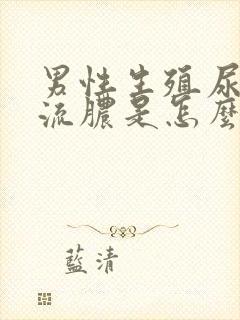 男性生殖尿
流膿是怎麼
藍清